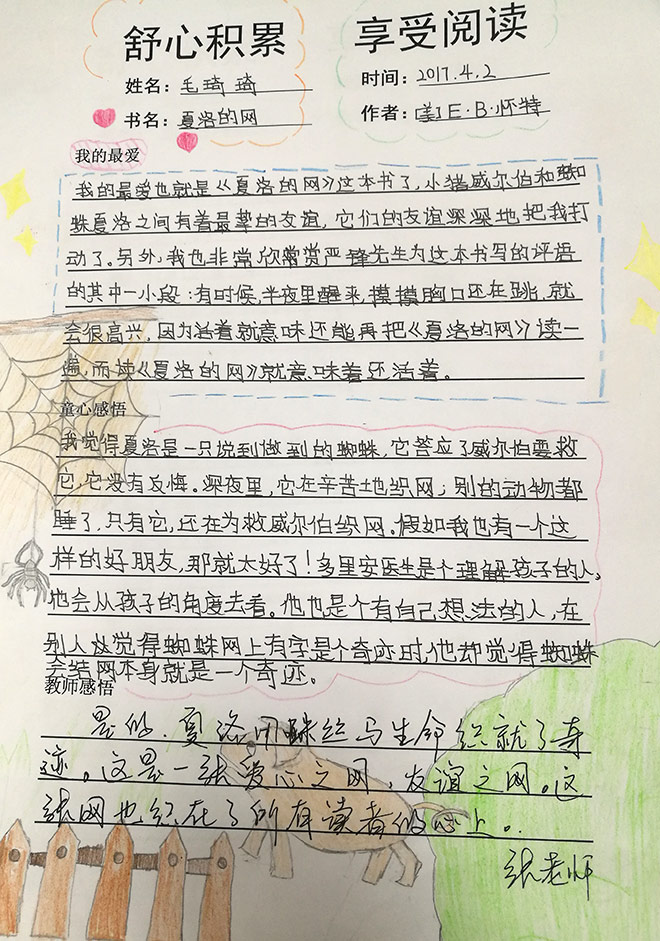 舒心积累 享受阅读
姓名：毛琦琦 时间：2017.4.2
书名：夏洛的网 作者：[美]E·B·怀特
我的最爱
我的最爱也就是《夏洛的网》这本书了，小猪威尔伯和蜘
蛛夏洛之间有着最挚的友谊，它们的友谊深深地把我打
动了。另外，我也非常欣赏严锋先生为这本书写的评语
的其中一小段：有时候，半夜里醒来，摸摸胸口还在跳，就
会很高兴，因为活着就意味还能再把《夏洛的网》读一
遍，而读《夏洛的网》就意味着还活着。
童心感悟
我觉得夏洛是一只说到做到的蜘蛛，它答应了威尔伯要救
它，它没有反悔。深夜里，它在辛苦地织网；别的动物都
睡了，只有它，还在为救威尔伯织网。假如我也有一个这
样的好朋友，那就太好了！多里安医生是个理解孩子的人，
他会从孩子的角度去看。他也是个有自己想法的人，在
别人觉得蜘蛛网上有字是个奇迹时，他却觉得蜘蛛
会结网本身就是一个奇迹。
教师感悟
是的，夏洛用蛛丝与生命织就了奇
迹。这是一张爱心之网，友谊之网。这
张网也织在了所有读者的心上。
张老师